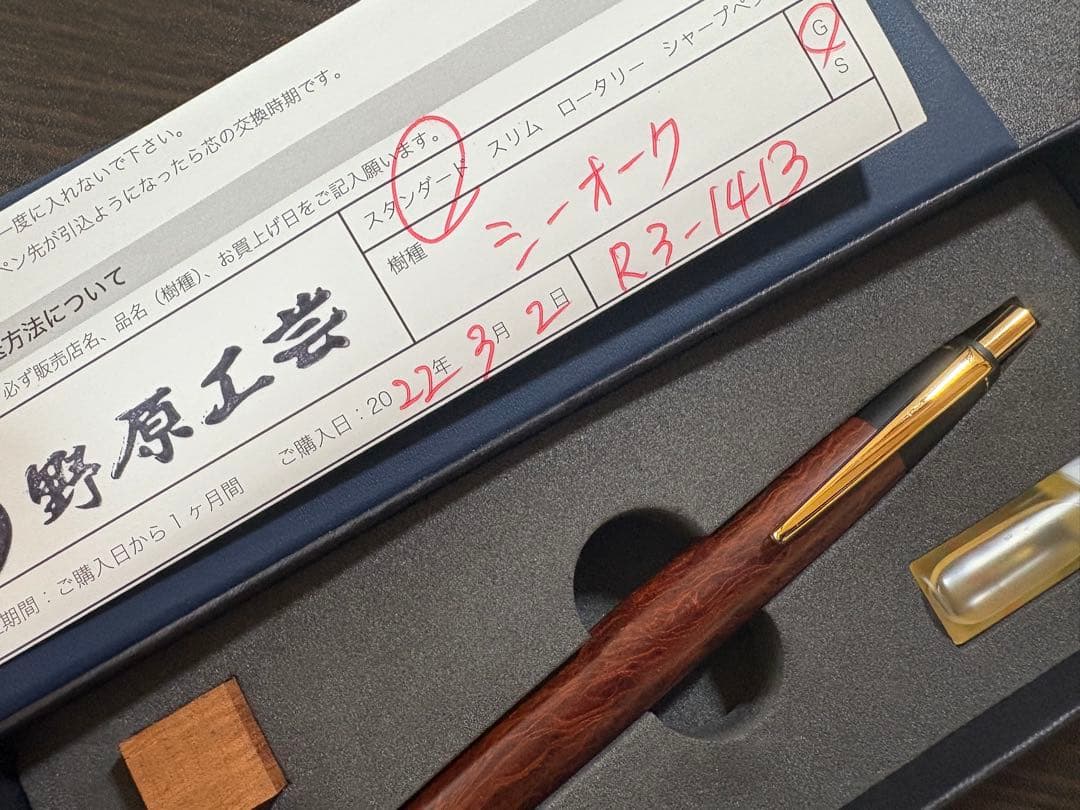 一度に入れないで下さい。
ペン先が引込ようになったら芯の交換時期です。
方法について
必ず販売店名、品名(樹種)、お買上げ日をご記入願います。
スタンダード スリム ロータリー シャープペン
G
S
樹種 シーオーク
野原工芸
ご購入日:2022年3月2日
R3-1413
期間:ご購入日から1ヶ月間